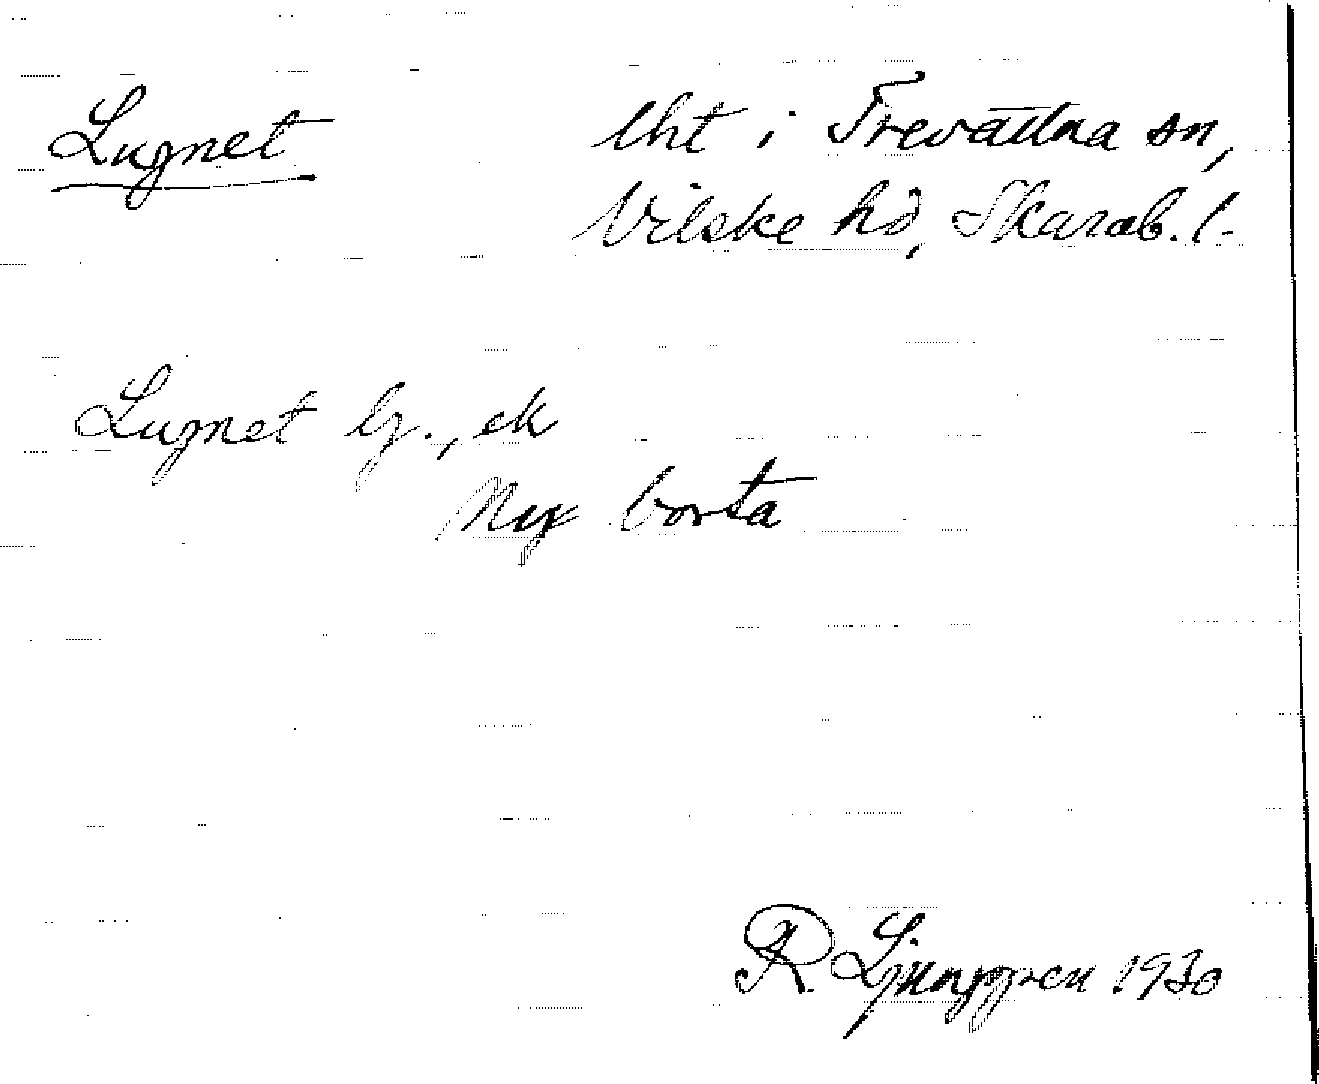 Lugnet lht i Trevattna sn,
Vilske hd, Skarab. l.
Lugnet lg., ek
Nyx borta
R. Ljunggren 1930